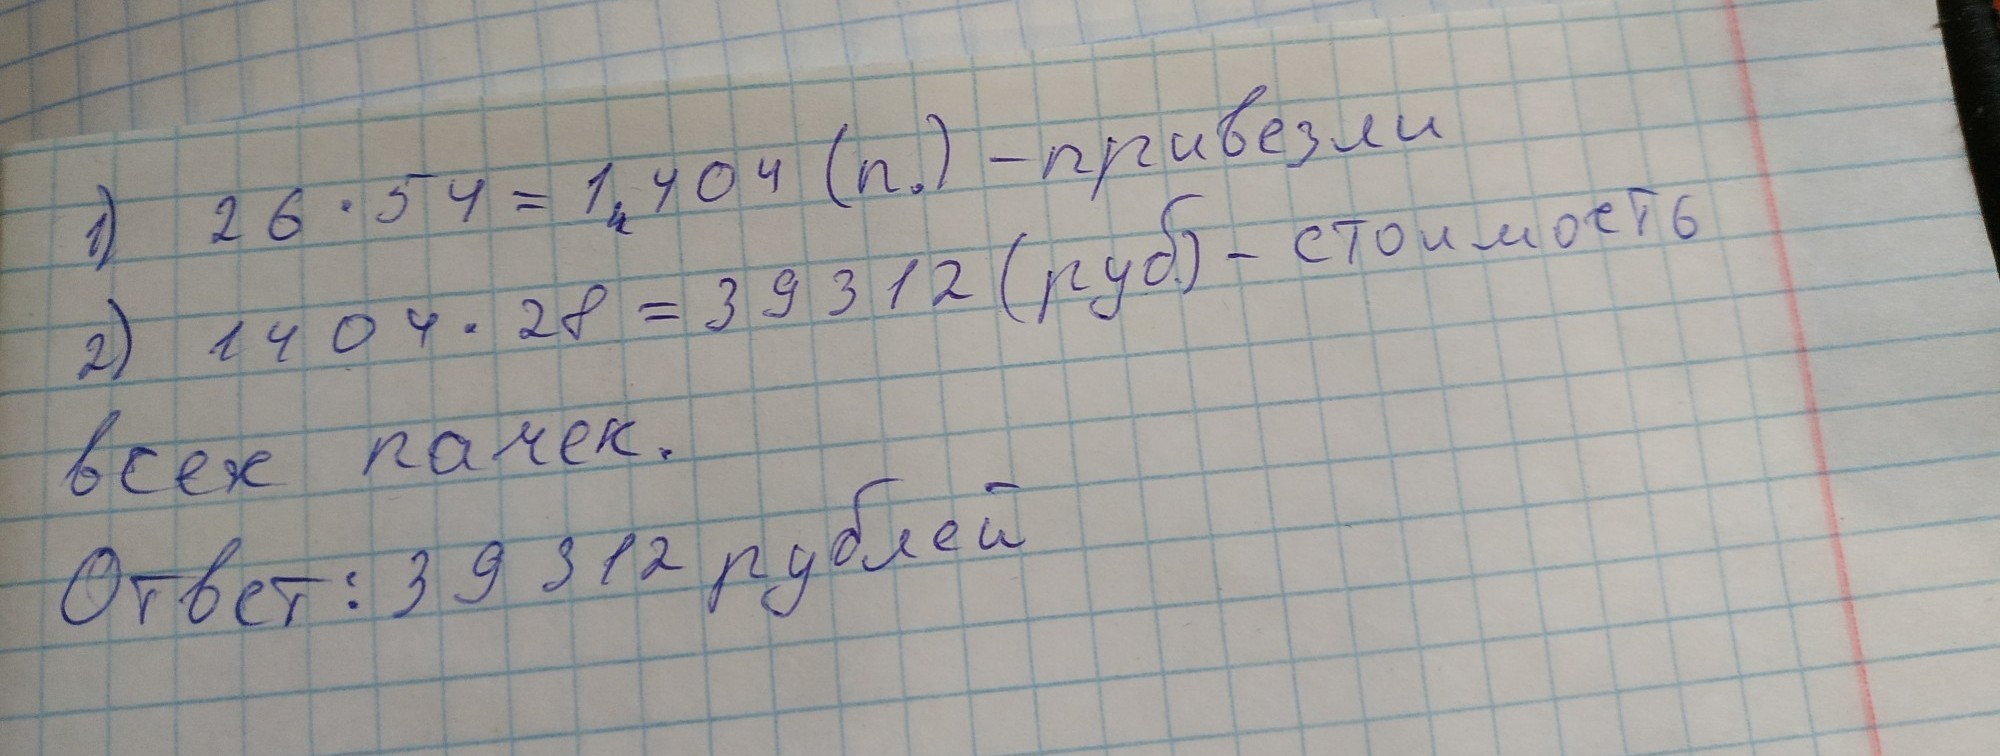 1) 26·54=1404 (п.) - привезли
2) 1404·28=39312 (руб.) - стоимость
всех пачек.
Ответ: 39312 рублей